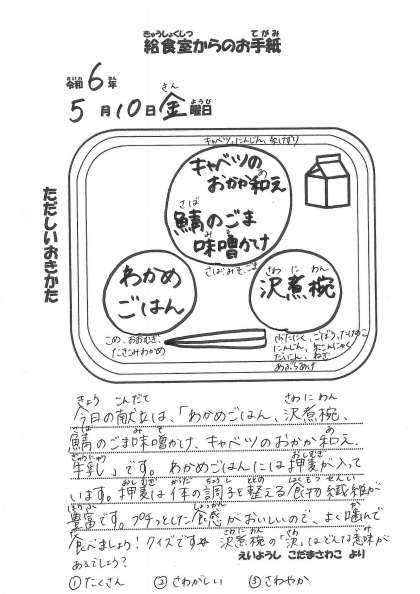 給食室からのお手紙
令和6年
5月10日金曜日
ただしいおきかた
キャベツ、にんじん、糸けずり
キャベツの
おかか和え
鯖のごま
味噌かけ
さば、みそ、ごま
わかめ
ごはん
沢煮椀
こめ、おおむぎ、
たきこみわかめ
ぶたにく、ごぼう、たけのこ
にんじん、糸こんにゃく
だいこん、ねぎ
あぶらあげ
今日の献立は、「わかめごはん、沢煮椀、
鯖のごま味噌かけ、キャベツのおかか和え、
牛乳」です。わかめごはんには押麦が入って
います。押麦は体の調子を整える食物繊維が
豊富です。プチっとした食感がおいしいので、よく噛んで
食べましょう！クイズです☆ 沢煮椀の「沢」はどんな意味が
あるでしょう？
えいようし こだまさわこ より
①たくさん ②さわがしい ③さわやか